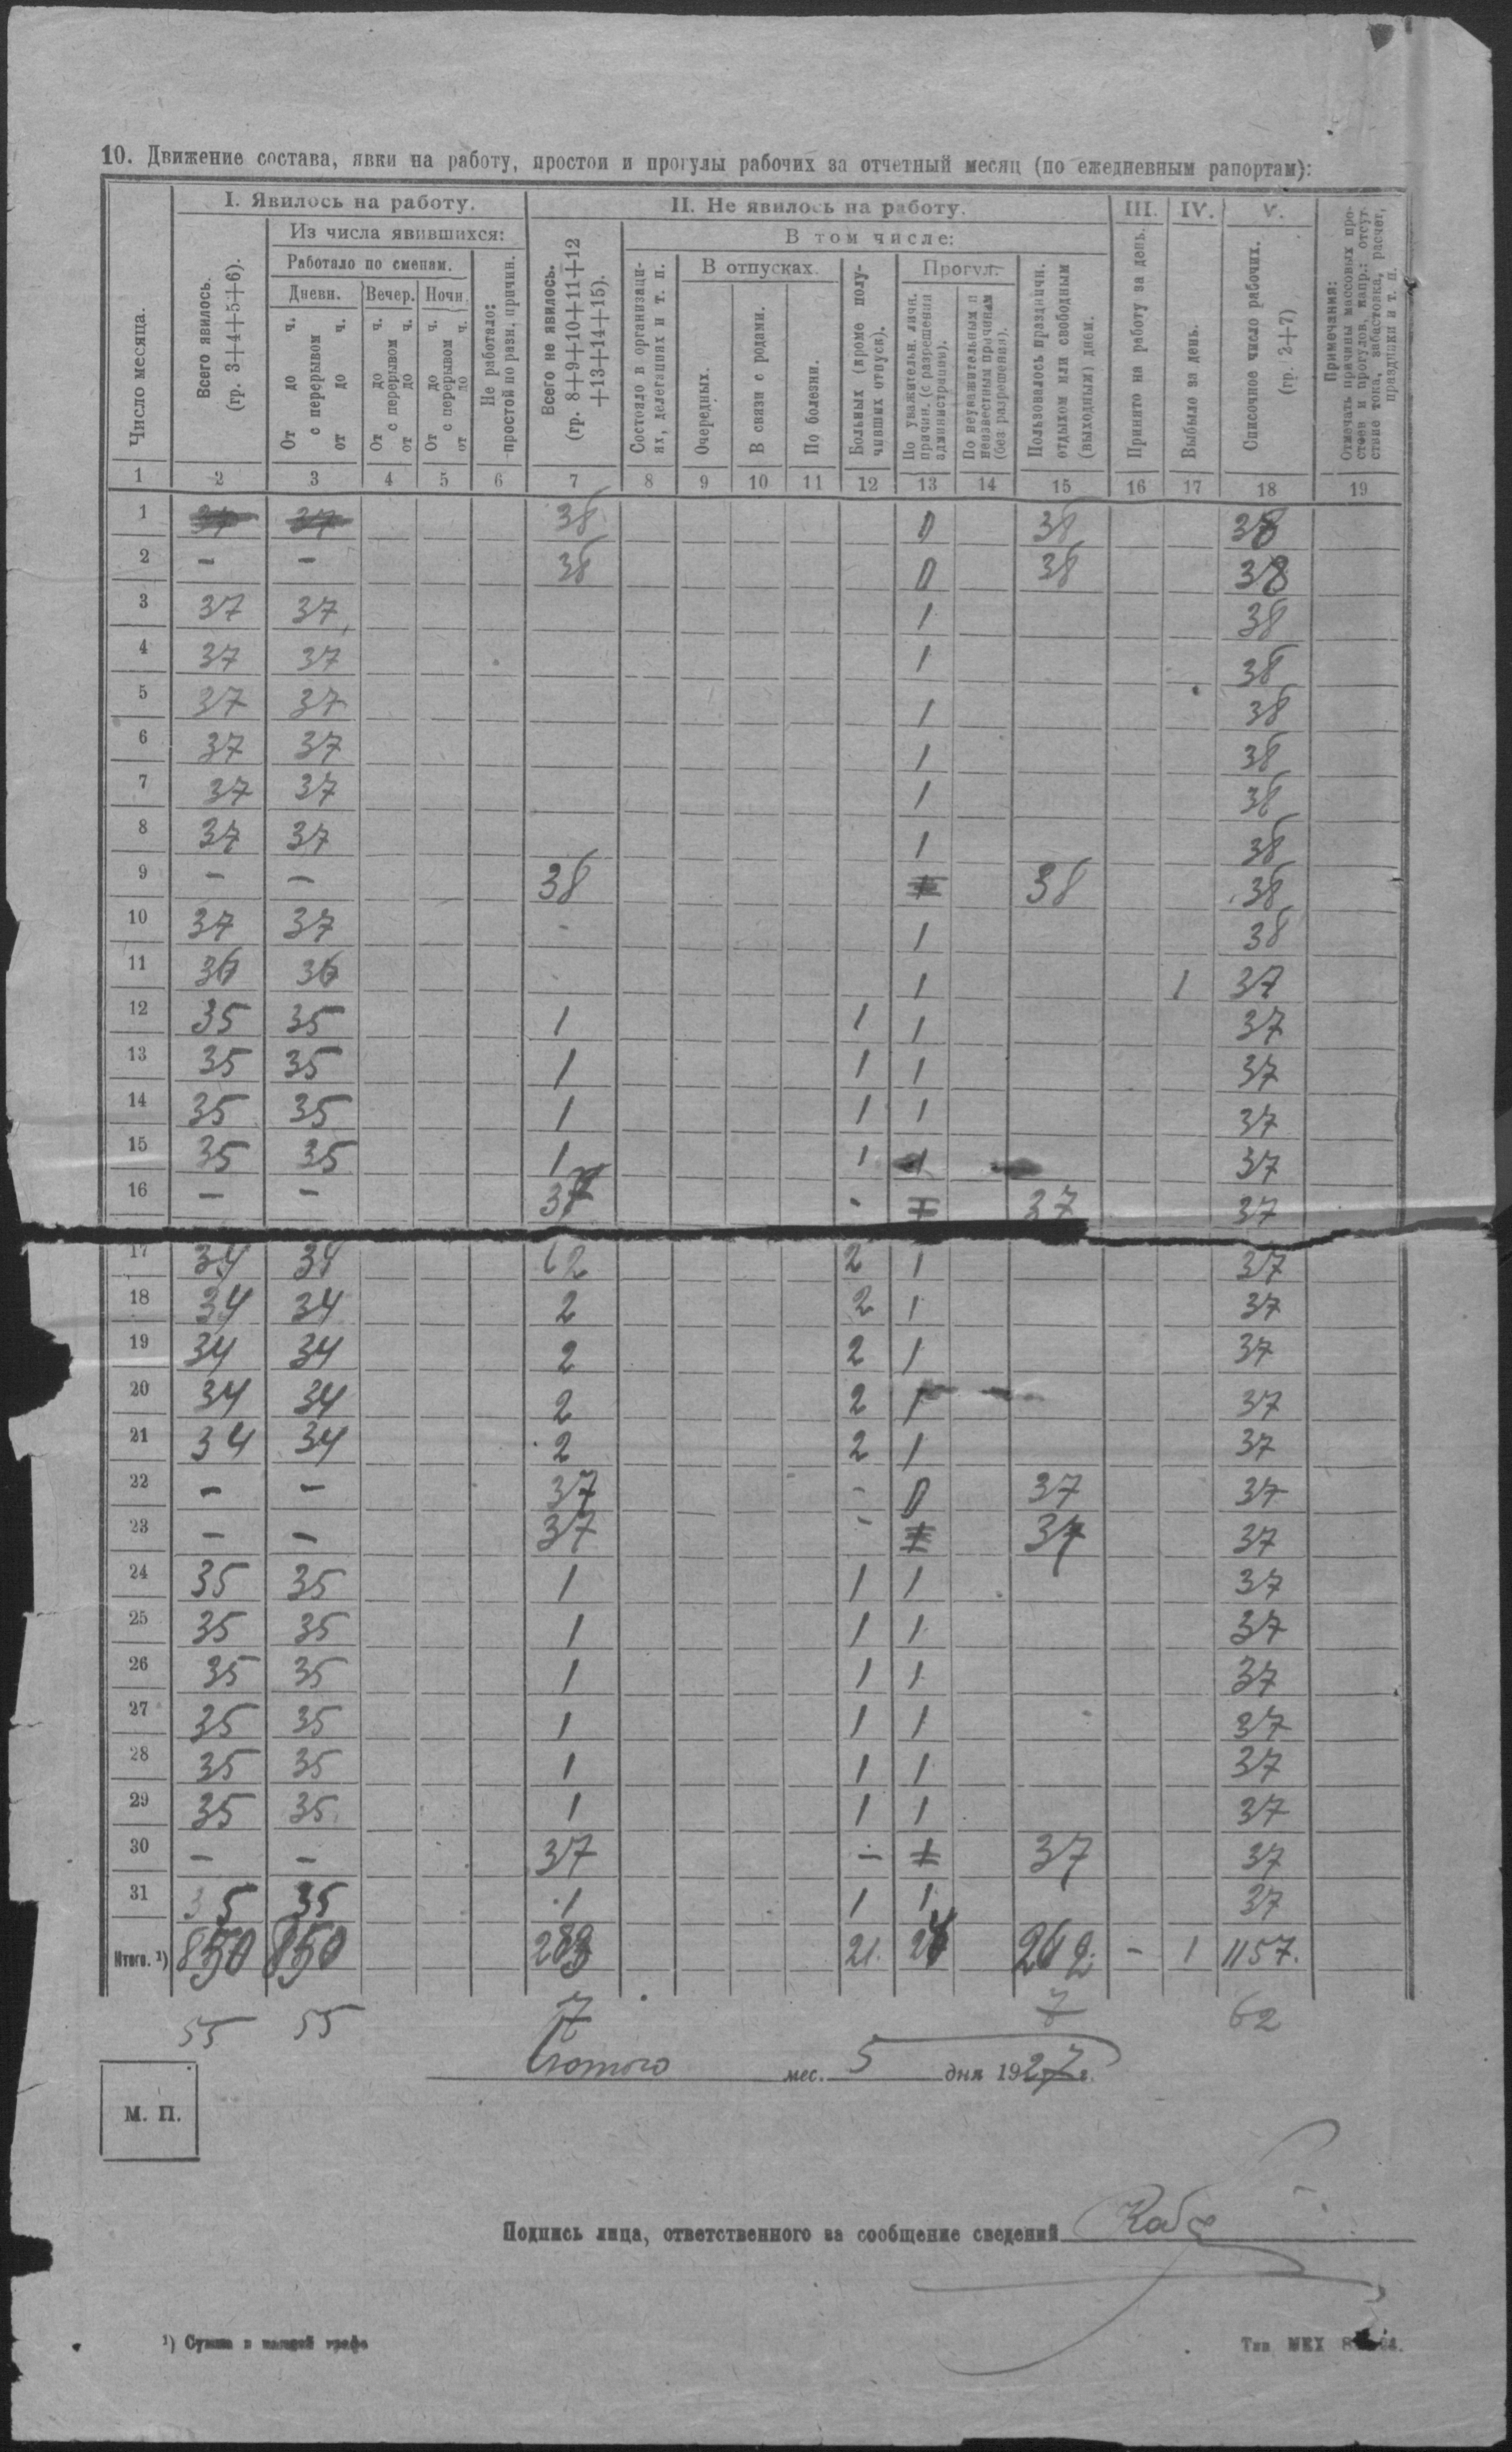 10. Движение состава, явки на работу, простои и прогулы рабочих за отчетный месяц (по ежедневным рапортам):
Число месяца.
I. Явилось на работу.
Всего явилось. (гр. 3+4+5+6).
Из числа явившихся:
Работало по сменам.
Дневн.
От до ч. с перерывом от до ч.
Вечер.
От до ч. с перерывом от до ч.
Ночн.
От до ч. с перерывом от до ч.
Не работало: простой по разн. причин.
II. Не явилось на работу.
Всего не явилось. (гр. 8+9+10+11+12 +13+14+15).
В том числе:
Состояло в организациях, делегациях и т. п.
В отпусках.
Очередных.
В связи с родами.
По болезни.
Больных (кроме получивших отпуск).
Прогул:
По уважительн. личн. причин. (с разрешения администрации).
По неуважительным и неизвестным причинам (без разрешения).
Пользовалось праздничн. отдыхом или свободным (выходным) днем.
III.
Принято на работу за день.
IV.
Выбыло за день.
V.
Списочное число рабочих. (гр. 2+7)
Примечания:
Отмечать причины массовых простоев и прогулов, напр.: отсутствие тока, забастовка, расчет, праздники и т. п.
1 2 3 4 5 6 7 8 9 10 11 12 13 14 15 16 17 18 19
1 37 37 38 0 38 38
2 — — 38 0 38 38
3 37 37 1 38
4 37 37 1 38
5 37 37 1 38
6 37 37 1 38
7 37 37 1 38
8 37 37 1 38
9 — — 38 1 38 38
10 37 37 - 1 38
11 36 36 1 1 37
12 35 35 1 1 1 37
13 35 35 1 1 1 37
14 35 35 1 1 1 37
15 35 35 1 1 1 37
16 — — 37 - 1 37 37
17 34 34 2 2 1 37
18 34 34 2 2 1 37
19 34 34 2 2 1 37
20 34 34 2 2 1 37
21 34 34 2 2 1 37
22 — — 37 - 0 37 37
23 — — 37 - 1 37 37
24 35 35 1 1 1 37
25 35 35 1 1 1 37
26 35 35 1 1 1 37
27 35 35 1 1 1 37
28 35 35 1 1 1 37
29 35 35 1 1 1 37
30 — — 37 — 1 37 37
31 35 35 1 1 1 37
Итого. ¹) 850 850 283 21. 24 262. - 1 1157.
55 55 7 7 62
Лютого мес. 5 дня 1927 г.
М. П.
Подпись лица, ответственного за сообщение сведений
¹) Сумма в каждой графе
Тип. МЕХ